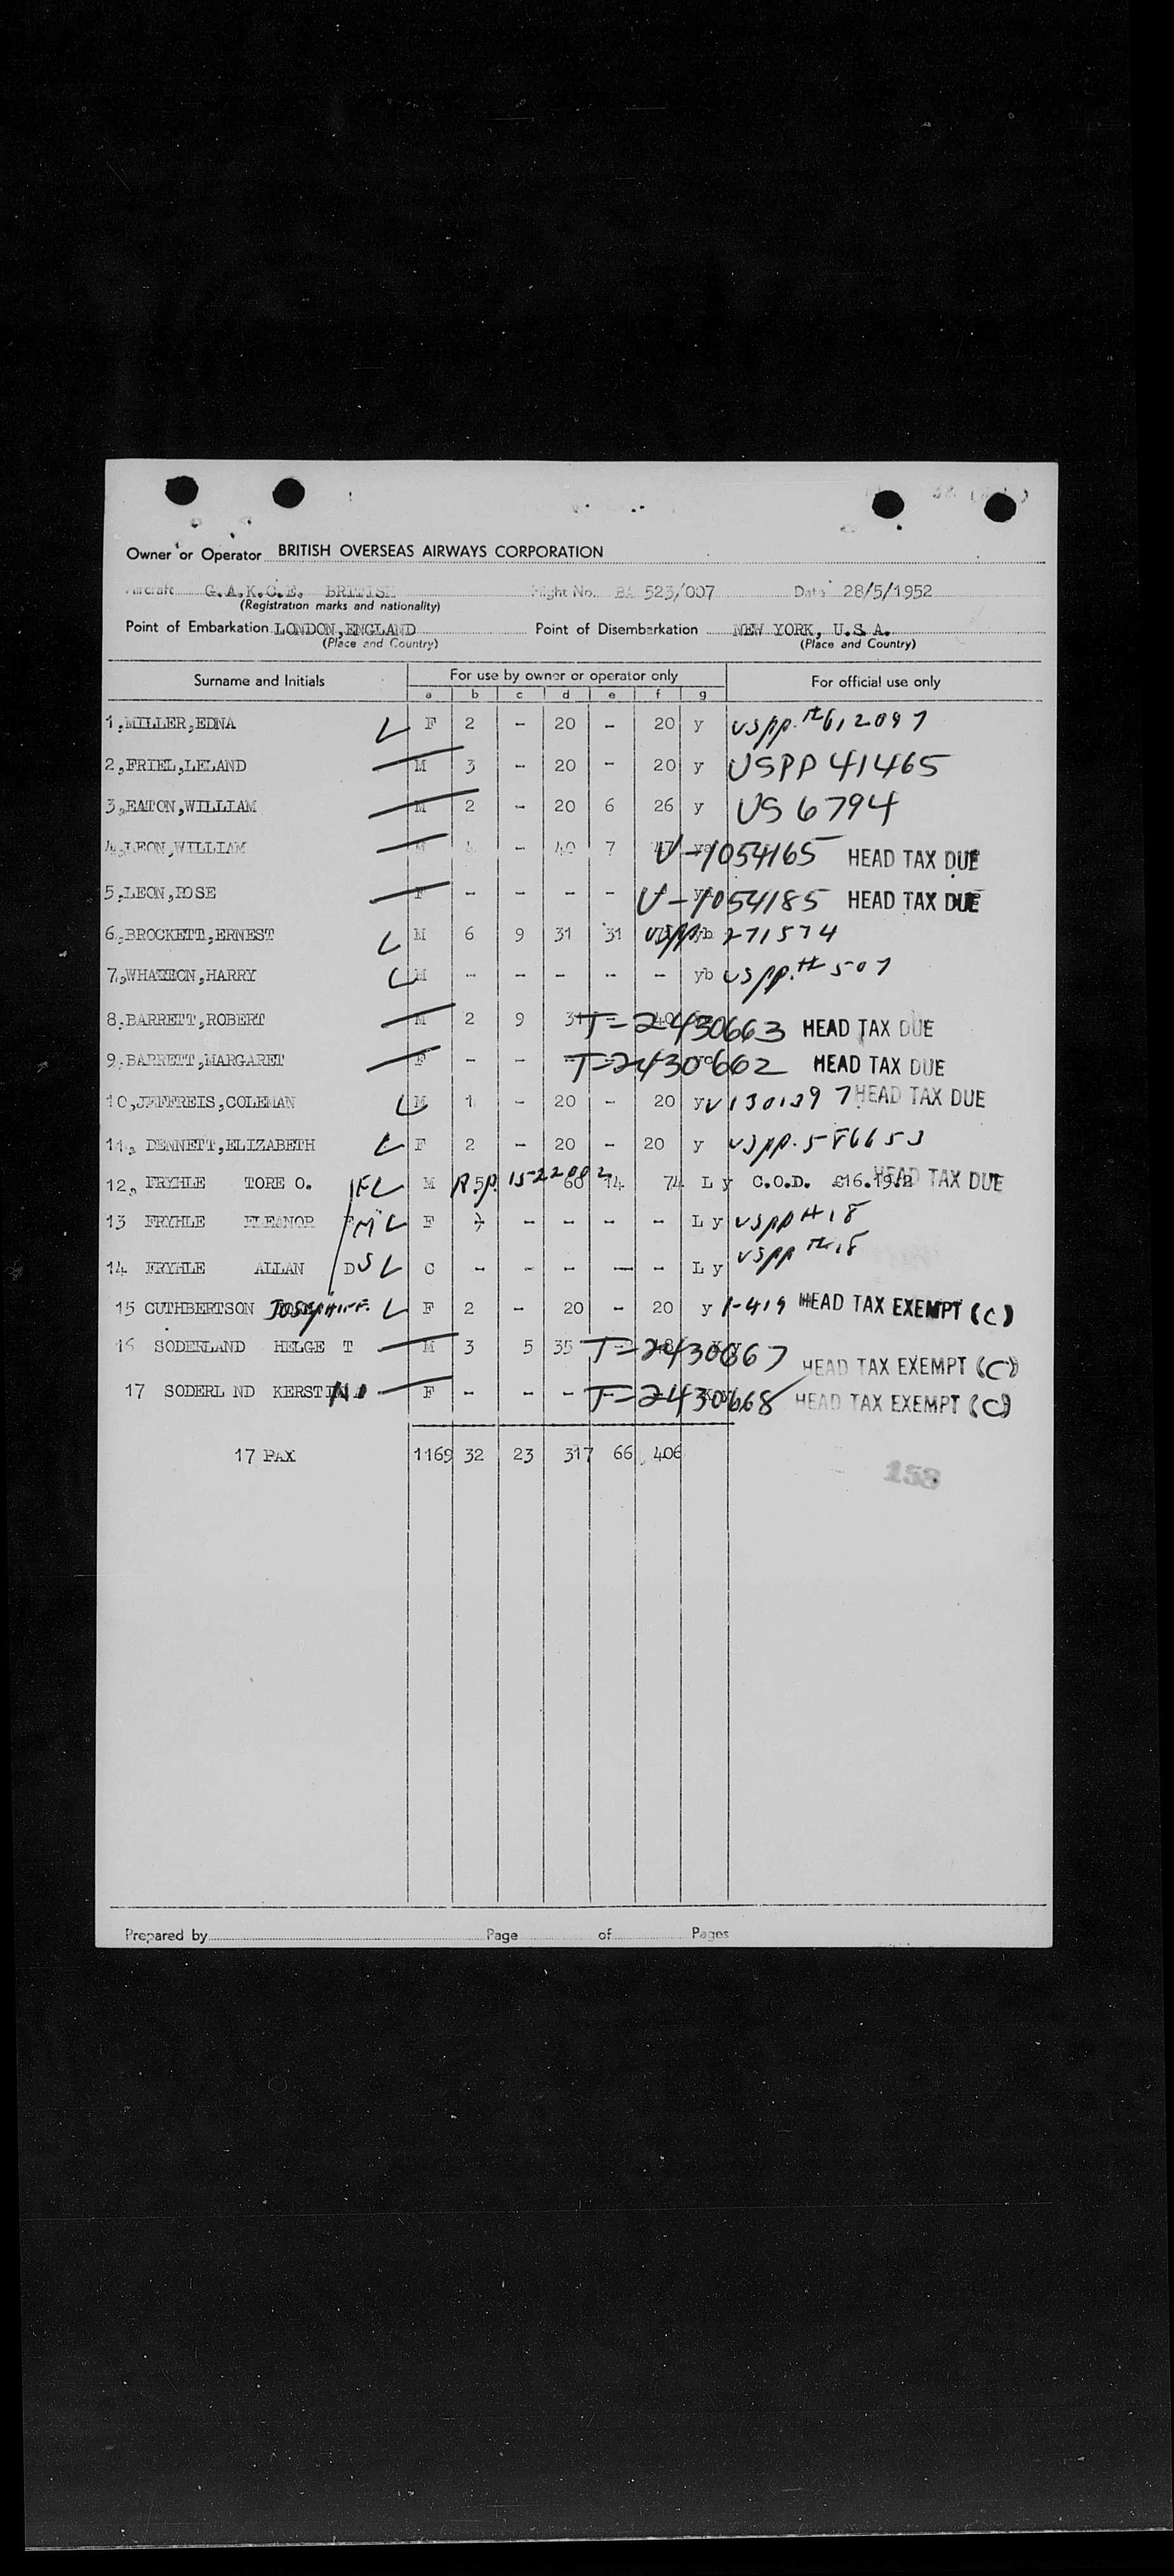 Owner or Operator BRITISH OVERSEAS AIRWAYS CORPORATION
Aircraft G.A.K.C.E. BRITISH Flight No. BA 523/007 Date 28/5/1952
(Registration marks and nationality)
Point of Embarkation LONDON,ENGLAND Point of Disembarkation NEW YORK, U.S.A.
(Place and Country) (Place and Country)
Surname and Initials For use by owner or operator only For official use only
a b c d e f g
1.MILLER,EDNA L F 2 - 20 - 20 y USpp.#612097
2,FRIEL,LELAND M 3 - 20 - 20 y USPP 41465
3,EATON,WILLIAM M 2 - 20 6 26 y US 6794
4.LEON,WILLIAM - 40 7 V-1054165 HEAD TAX DUE
5.LEON,ROSE F - - - - V-1054185 HEAD TAX DUE
6.BROCKETT,ERNEST L M 6 9 31 31 uspp 271574
7,WHATEON,HARRY L M - - - - - yb uspp.#507
8.BARRETT,ROBERT M 2 9 31 T-2430663 HEAD TAX DUE
9.BARRETT,MARGARET F - - T-2430662 HEAD TAX DUE
10,JEFFREIS,COLEMAN L M 1 - 20 - 20 y V1301397 HEAD TAX DUE
11. DENNETT,ELIZABETH L F 2 - 20 - 20 y uspp.586653
12, FRYHLE TORE O. L M 5 R.P. 1522002 60 14 74 L y C.O.D. £16.19.2 HEAD TAX DUE
13 FRYHLE ELEANOR F M L F - - - - L y uspp#18
14 FRYHLE ALLAN D S L C - - - - - L y uspp#18
15 CUTHBERTSON JOSEPHINE. L F 2 - 20 - 20 y 1-419 HEAD TAX EXEMPT (C)
16 SODERLAND HELGE T M 3 5 35 T-2430667 HEAD TAX EXEMPT (C)
17 SODERL ND KERSTIN F - - - T-2430668 HEAD TAX EXEMPT (C)
17 PAX 1169 32 23 317 66 406
158
Prepared by Page of Pages